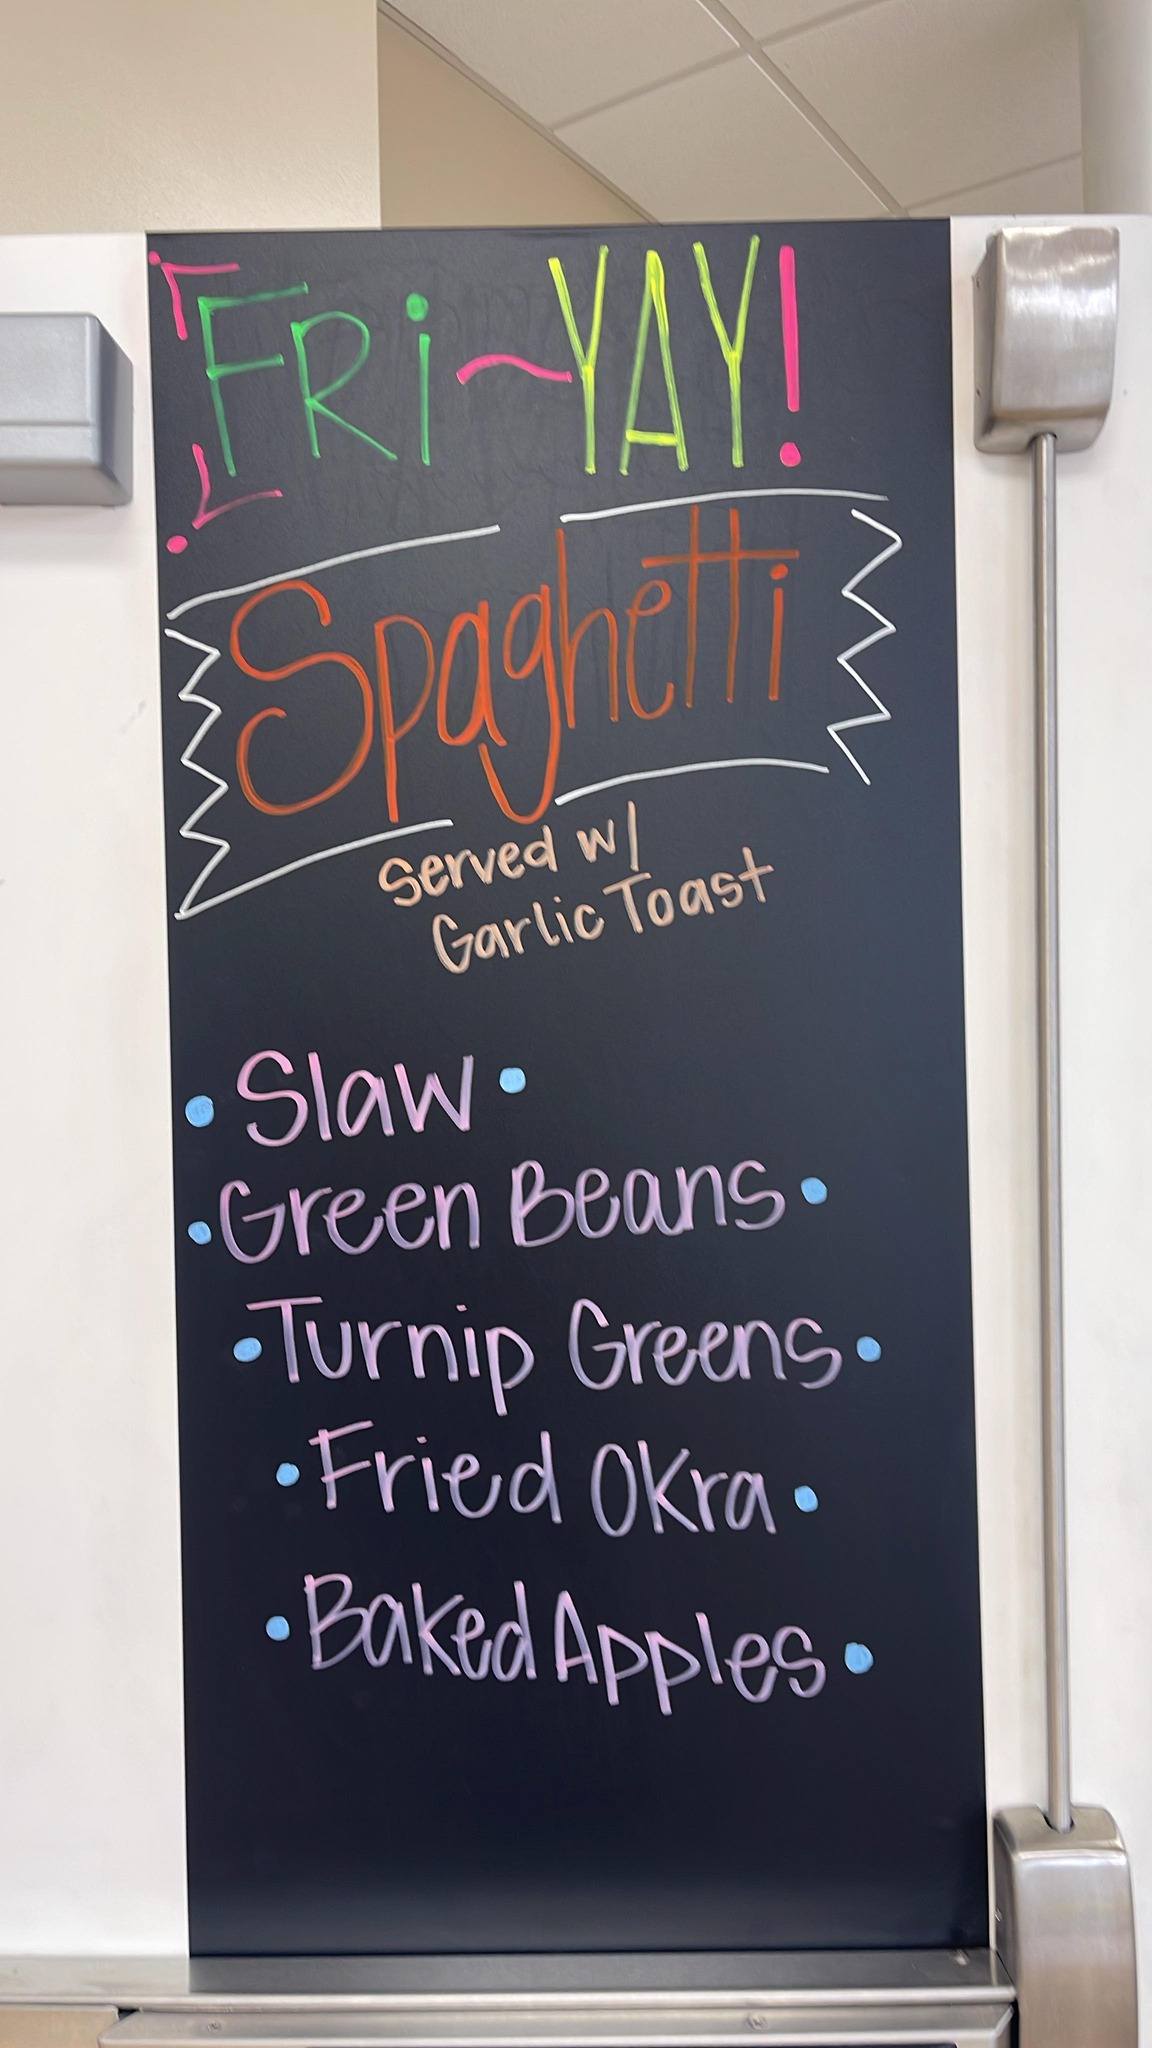 FRi~YAY!
Spaghetti
Served w/
Garlic Toast
• Slaw •
• Green Beans •
• Turnip Greens •
• Fried Okra •
• Baked Apples •